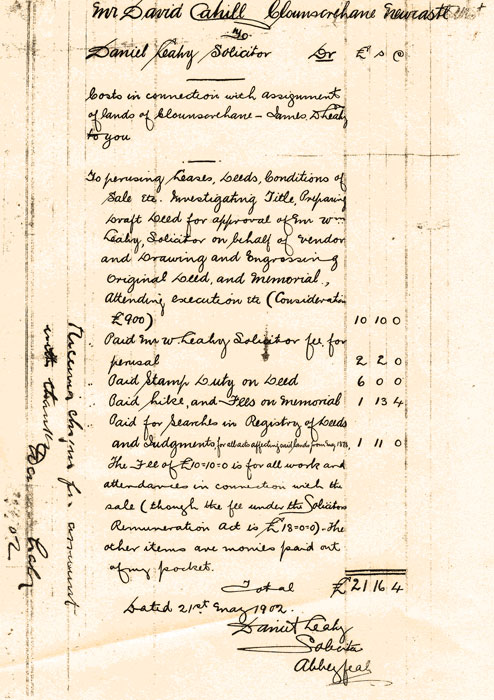 Mr David Cahill Clounsorehane Newcastle West
To
Daniel Leahy Solicitor Dr £ s d
Costs in connection with assignment
of lands of Clounsorehane – James D Leahy
to you
To perusing Leases, Deeds, Conditions of
Sale etc. Investigating Title, Preparing
Draft Deed for approval of Mr Wm
Leahy, Solicitor on behalf of Vendor
and Drawing and Engrossing
Original Deed, and Memorial,
Attending execution etc (Consideration
£900) 10 10 0
Paid Mr W Leahy Solicitor fee for
perusal 2 2 0
Paid Stamp Duty on Deed 6 0 0
Paid like, and Fees on Memorial 1 13 4
Paid for Searches in Registry of Deeds
and Judgments, for all acts affecting said lands from May 1878, 1 11 0
The Fee of £10=10=0 is for all work and
attendances in connection with the
sale (though the fee under the Solicitors
Remuneration Act is £18=0=0). The
other items are monies paid out
of my pocket.
Total £21 16 4
Dated 21st May 1902.
Daniel Leahy
Solicitor
Abbeyfeale
Received cheque for amount
with thanks
Daniel Leahy